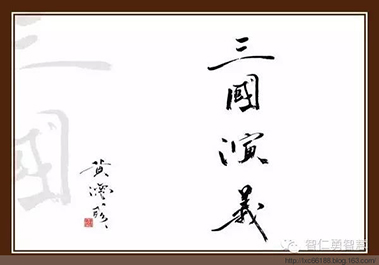 三國演義
三國
智仁勇智慧
http://lxc66188.blog.163.com/